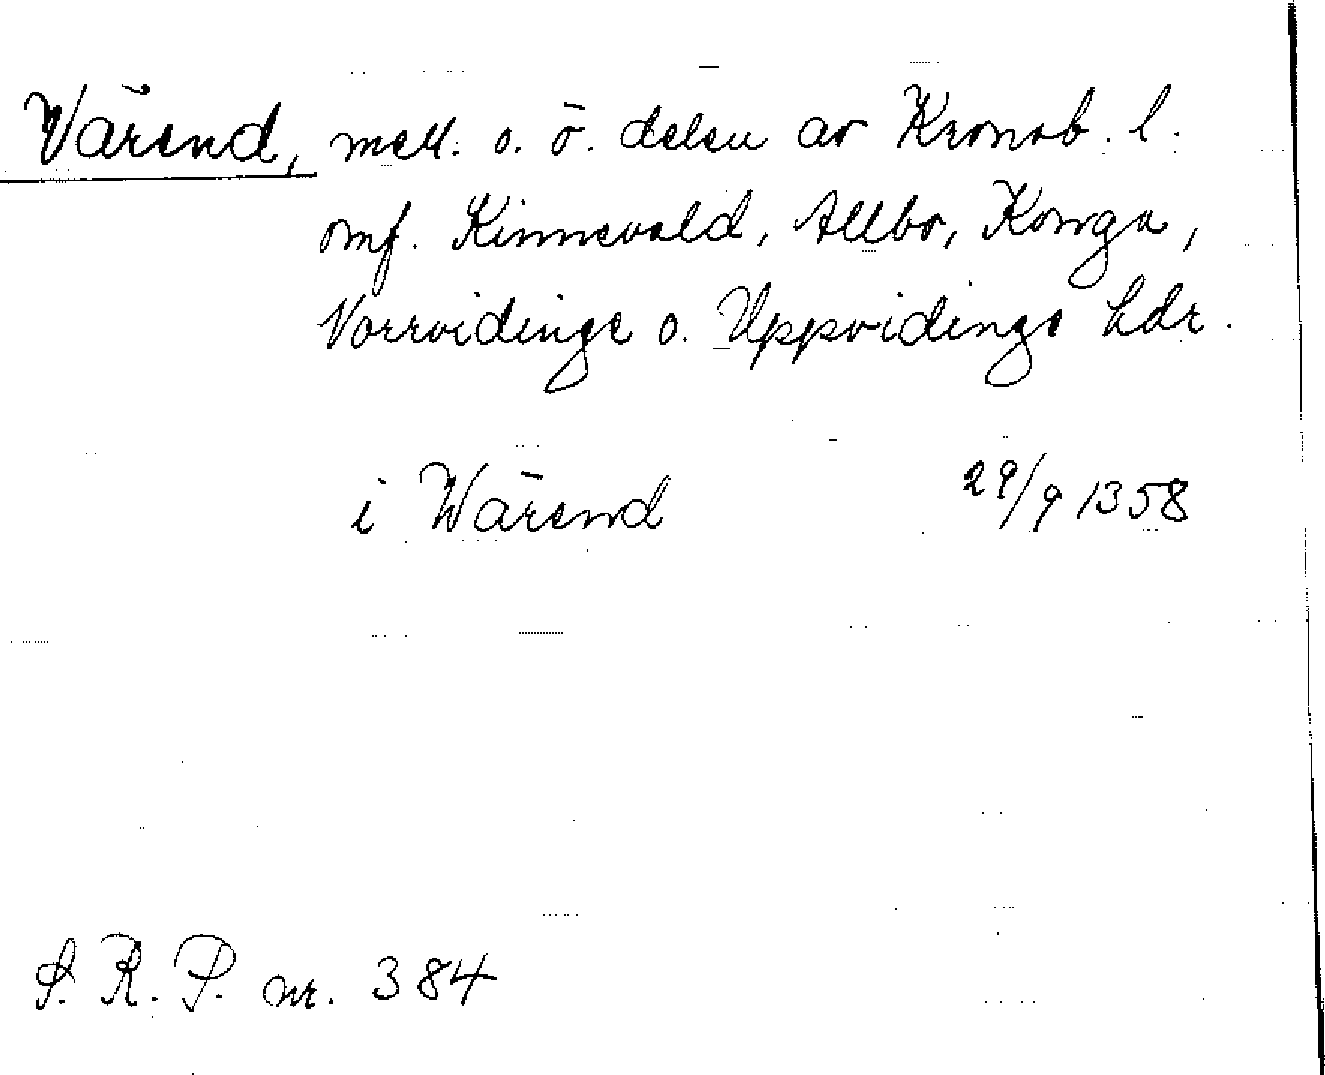 Värend, mell. o. ö. delen av Kronob. l.
omf. Kinnevald, Allbo, Konga,
Norrvidinge o. Uppvidinge hdr.
i Wärend 29/9 1358
S. R. P. nr. 384